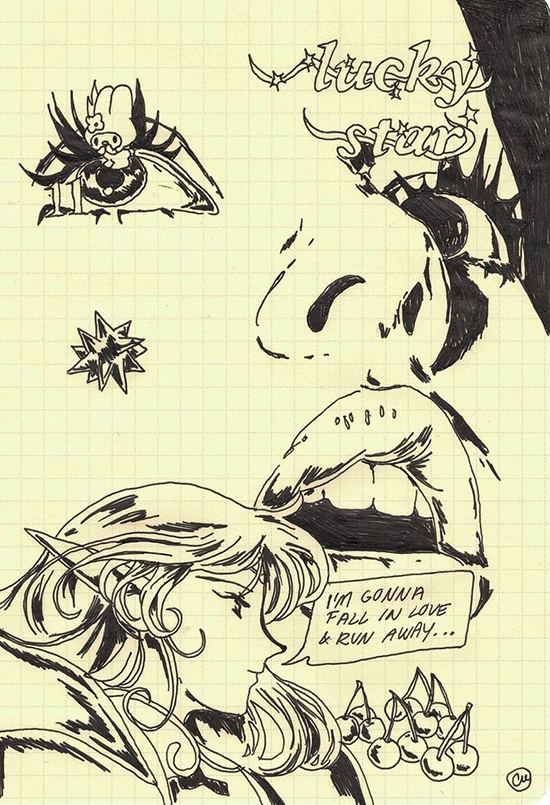 lucky
star
I'M GONNA
FALL IN LOVE
& RUN AWAY...